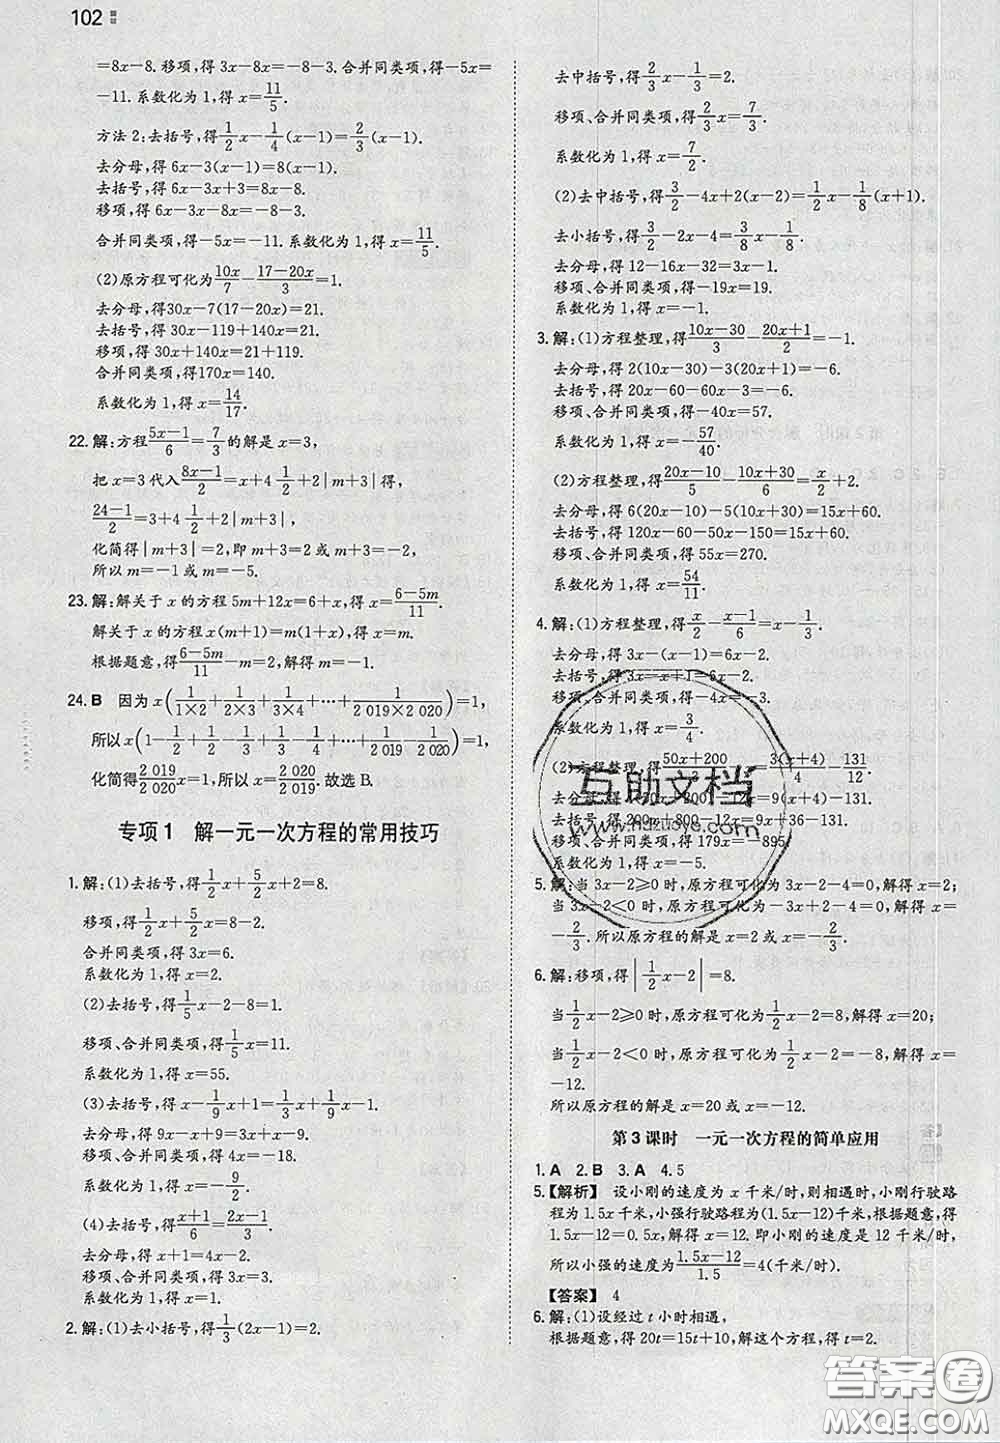 102
=8x-8.移项,得3x-8x=-8-3.合并同类项,得-5x=
-11.系数化为1,得x=11/5.
方法2:去括号,得1/2x-1/4(x-1)=2/3(x-1).
去分母,得6x-3(x-1)=8(x-1).
去括号,得6x-3x+3=8x-8.
移项,得6x-3x-8x=-8-3.
合并同类项,得-5x=-11.系数化为1,得x=11/5.
(2)原方程可化为10x/7-(17-20x)/3=1.
去分母,得30x-7(17-20x)=21.
去括号,得30x-119+140x=21.
移项,得30x+140x=21+119.
合并同类项,得170x=140.
系数化为1,得x=14/17.
22.解:方程(5x-1)/6=7/3的解是x=3,
把x=3代入(8x-1)/2=x+4 1/2+2|m+3|得,
(24-1)/2=3+4 1/2+2|m+3|,
化简得|m+3|=2,即m+3=2或m+3=-2,
所以m=-1或m=-5.
23.解:解关于x的方程5m+12x=6+x,得x=(6-5m)/11.
解关于x的方程x(m+1)=m(1+x),得x=m.
根据题意,得(6-5m)/11-m=2,解得m=-1.
24.B 因为x(1/(1×2)+1/(2×3)+1/(3×4)+…+1/(2 019×2 020))=1,
所以x(1-1/2+1/2-1/3+1/3-1/4+…+1/2 019-1/2 020)=1,
化简得2 019/2 020x=1,所以x=2 020/2 019.故选B.
专项1 解一元一次方程的常用技巧
1.解:(1)去括号,得1/2x+5/2x+2=8.
移项,得1/2x+5/2x=8-2.
合并同类项,得3x=6.
系数化为1,得x=2.
(2)去括号,得1/5x-2-8=1.
移项、合并同类项,得1/5x=11.
系数化为1,得x=55.
(3)去括号,得x-1/9x+1=1/3x+1/9x.
去分母,得9x-x+9=3x+x.
移项、合并同类项,得4x=-18.
系数化为1,得x=-9/2.
(4)去括号,得(x+1)/6=(2x-1)/3.
去分母,得x+1=4x-2.
移项、合并同类项,得3x=3.
系数化为1,得x=1.
2.解:(1)去小括号,得1/3(2x-1)=2.
去中括号,得2/3x-1/3=2.
移项、合并同类项,得2/3x=7/3.
系数化为1,得x=7/2.
(2)去中括号,得3/2-4x+2(x-2)=1/2x-1/8(x+1).
去小括号,得3/2-2x-4=3/8x-1/8.
去分母,得12-16x-32=3x-1.
移项、合并同类项,得-19x=19.
系数化为1,得x=-1.
3.解:(1)方程整理,得(10x-30)/3-(20x+1)/2=-1.
去分母,得2(10x-30)-3(20x+1)=-6.
去括号,得20x-60-60x-3=-6.
移项、合并同类项,得-40x=57.
系数化为1,得x=-57/40.
(2)方程整理,得(20x-10)/5-(10x+30)/6=x/2+2.
去分母,得6(20x-10)-5(10x+30)=15x+60.
去括号,得120x-60-50x-150=15x+60.
移项、合并同类项,得55x=270.
系数化为1,得x=54/11.
4.解:(1)方程整理,得x/2-(x-1)/6=x-1/3.
去分母,得3x-(x-1)=6x-2.
去括号,得3x-x+1=6x-2.
移项、合并同类项,得-4x=-3.
系数化为1,得x=3/4.
(2)方程整理,得(50x+200)/3-1=3(x+4)/4-131/12.
去分母,得4(50x+200)-12=9(x+4)-131.
去括号,得200x+800-12=9x+36-131.
移项、合并同类项,得179x=-895.
系数化为1,得x=-5.
5.解:当3x-2≥0时,原方程可化为3x-2-4=0,解得x=2;
当3x-2<0时,原方程可化为-3x+2-4=0,解得x=
-2/3.所以原方程的解是x=2或x=-2/3.
6.解:移项,得|1/2x-2|=8.
当1/2x-2≥0时,原方程可化为1/2x-2=8,解得x=20;
当1/2x-2<0时,原方程可化为1/2x-2=-8,解得x=
-12.
所以原方程的解是x=20或x=-12.
第3课时 一元一次方程的简单应用
1.A 2.B 3.A 4.5
5.【解析】 设小刚的速度为x千米/时,则相遇时,小刚行驶路
程为1.5x千米,小强行驶路程为(1.5x-12)千米,根据题意,得
1.5x-12=0.5x,解得x=12.即小刚的速度是12千米/时,
所以小强的速度为(1.5x-12)/1.5=4(千米/时).
【答案】 4
6.解:(1)设经过t小时相遇,
根据题意,得20t=15t+10,解这个方程,得t=2.
互助文档
www.hdzuoye.com
答案圈
MXQE.COM